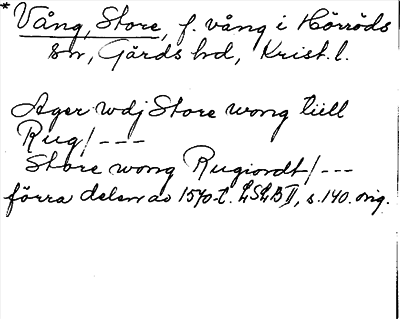 * Vång, Store, f. vång i Hörröds
sn, Gärds hd, Krist. l.
Ager wdj Store wong tiill
Rug/ - - -
Store wong Rugiordt/ - - -
förra delen av 1570-t. LSLB II, s. 140. orig.